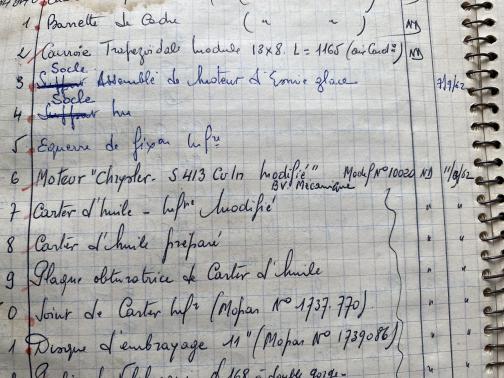 1 Barrette de Cadre ( " " ) ND
2 Courroie Trapezoidale module 13x8. L = 1165 (air Cond.) ND
Socle
3 Support Assemblé de Moteur d'Essuie glace 7/9/62
Socle
4 Support nu
5 Equerre de fixon Infre
6 Moteur "Chrysler - S 413 Cu In modifié" Modif N° 10020 ND 11/9/62
BV. Mécanique
7 Carter d'huile - Infre Modifié " "
8 Carter d'huile préparé " "
9 Plaque obturatrice de Carter d'huile " "
0 Joint de Carter Infr (Mopar N° 1737.770) " "
1 Disque d'embrayage 11" (Mopar N° 1739086) " "